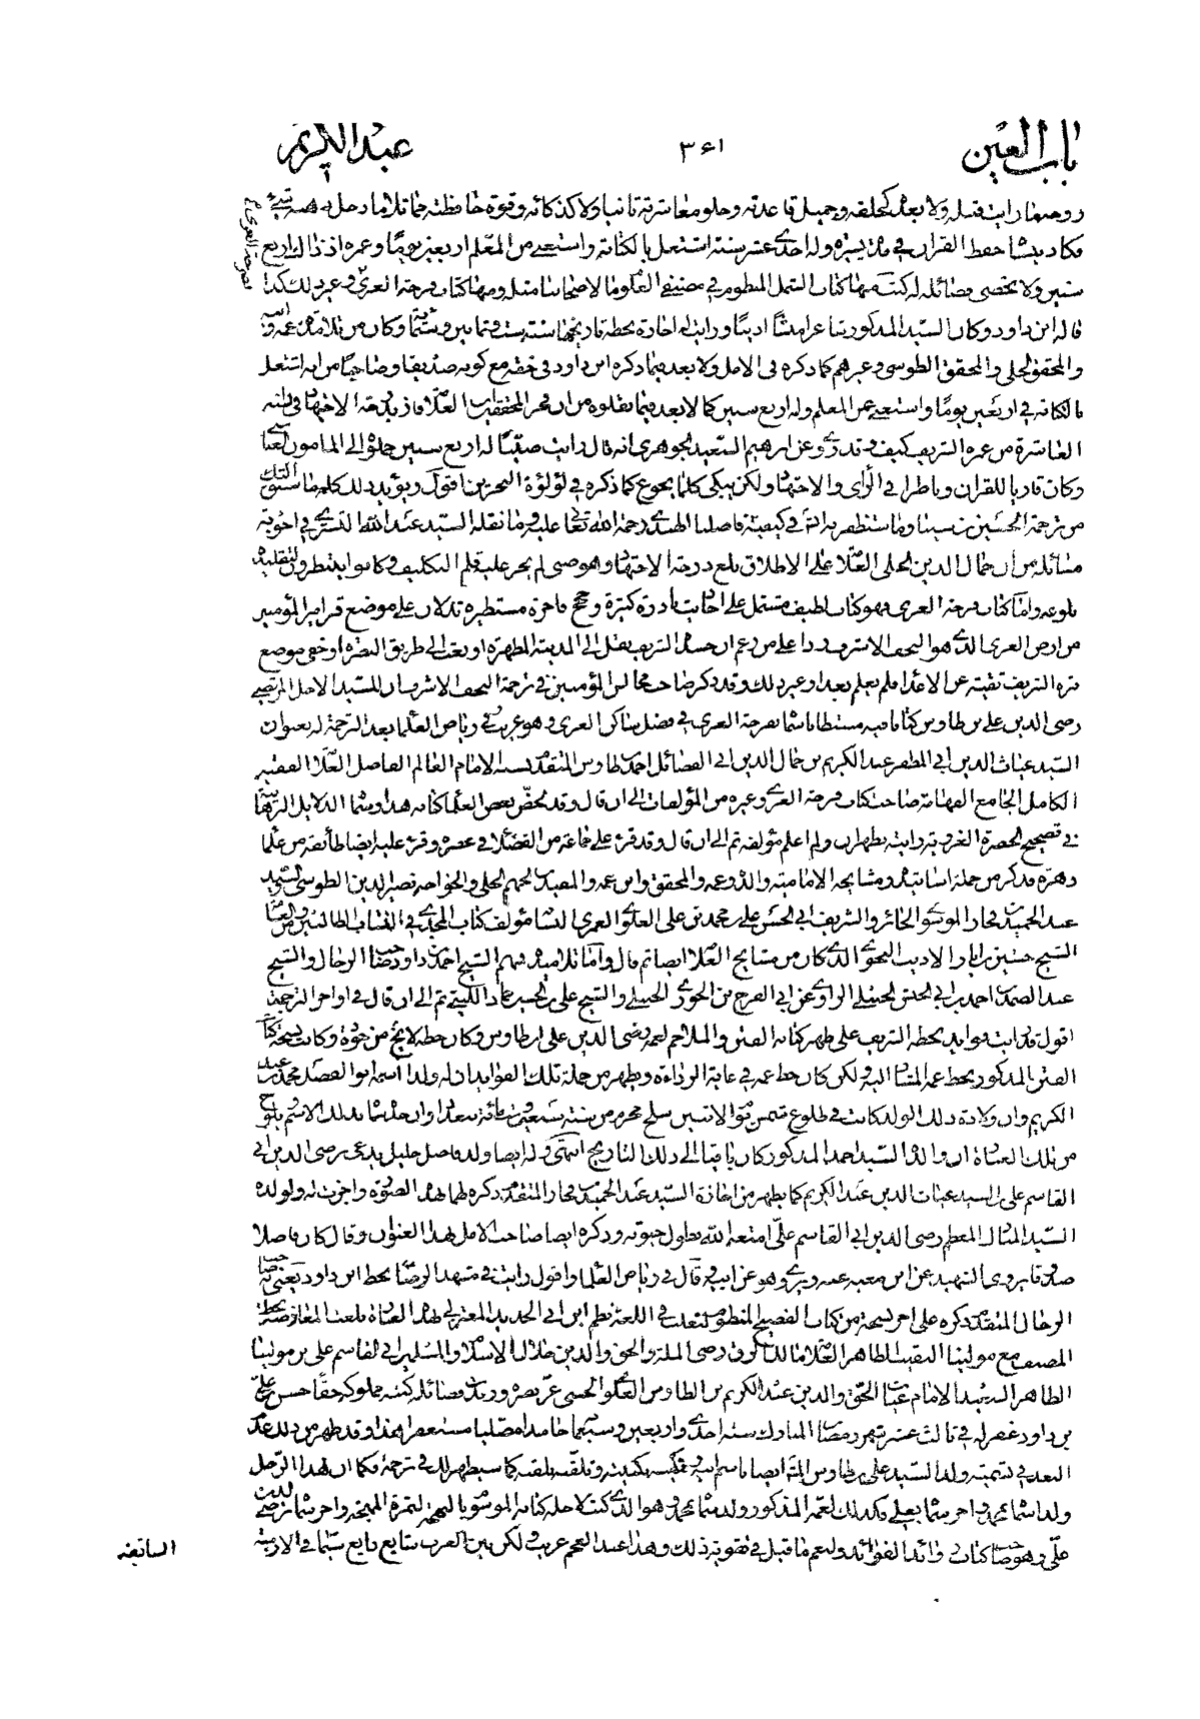 باب العين
٣٦١
عبد الكريم
وصيفا رايت قبله ولا بعده كخلقه وجميل قاعدته وحلو معاشرته ثانيا ولا كذكائه وقوة حافظته مماثلا ما دخل ذهنه شئ
فكاد ينساه حفظ القران في مدة يسيرة وله احدى عشر سنة اشتغل بالكتابة واستغنى عن المعلم اربعين يوما وعمره اذ ذاك اربع
سنين ولا تحصى فضائله له كتب منها كتاب الشمل المنظوم في مصنفى العلوم ما لاصحابنا مثله ومنها كتاب فرحة الغرى وغير ذلك كذا
قاله ابن داود وكان السيد المذكور شاعرا منشئا اديبا ورايت له اجازة بخطه تاريخها سنة ست وثمانين وستمائة وكان من تلامذة عمه وابيه
والمحقق الحلى والمحقق الطوسى وغيرهم كما ذكره فى الامل ولا بعد فيما ذكره ابن داود فى حقه مع كونه صديقا وصاحبا من انه اشتغل
بالكتابة في اربعين يوما واستغنى عن المعلم وله اربع سنين كما لا بعد فيما نقلوه من ان فخر المحققين ابن العلامة فاز بدرجة الاجتهاد في السنة
العاشرة من عمره الشريف كيف وقد روى عن ابرهيم السعيد الجوهرى انه قال رايت صبيا له اربع سنين حملوه الى المامون العباسى
وكان قاريا للقران وناظرا في الرأى والاجتهاد ولكن يبكى كلما يجوع كما ذكره في لؤلؤة البحرين اقول ويؤيد ذلك كله ما
من ترجمة الحسين بن سينا وما ستظفر به في كيفية فاضلنا الهندى رحمة الله تعالى عليه وما نقله السيد عبد الله التسترى في اجوبة
مسائله من ان جمال الدين الحلى العلامة على الاطلاق بلغ درجة الاجتهاد وهو صبى لم يجر عليه قلم التكليف وكانوا ينتظرون لتقليده
بلوغه واما كتاب فرحة الغرى فهو كتاب لطيف مشتمل على احاديث نادرة كثيرة وحجج فاخرة مستطيرة تدلان على موضع قبر امير المؤمنين
من ارض الغرى الذى هو النجف الاشرف ردا على من زعم ان جسده الشريف نقل الى المدينة المطهرة او بعث الى طريق البصرة او خفى موضع
قبره الشريف تقية عن الاعدا فلم يعلم بعد او غير ذلك وقد ذكر صاحب مجالس المؤمنين في ترجمة النجف الاشرف ان للسيد الاجل المرتضى
رضى الدين على بن طاوس كتابا فيه مستطابا سماه بفرحة الغرى في فضل ساكن الغرى وهو غريب وفي رياض العلما بعد الترجمة له بعنوان
السيد غياث الدين ابي المظفر عبد الكريم بن جمال الدين ابي الفضائل احمد بن طاوس المتقدم نسبه الامام العالم الفاضل العلامة الفقيه
الكامل الجامع الفهامة صاحب كتاب فرحة الغرى وغيره من المؤلفات الى ان قال وقد لخص بعض العلما كتابه هذا وسماه الدلايل البرهانية
في تصحيح الحضرة الغروية رايته بطهران ولم اعلم مؤلفه ثم الى ان قال وقد قرء على جماعة من الفضلاء في عصره وقرء عليه ايضا طائفة من علما
دهره فذكر من جملة اساتيده ومشايخه الامامية والده وعمه والمحقق وابن عمه والمفيد بن الجهم الحلى والخواجه نصير الدين الطوسى والسيد
عبد الحميد بن فخار الموسوى الحائرى والشريف ابي الحسن على بن محمد بن على العلوى العمرى النسابة مؤلف كتاب المجدى في انساب الطالبيين ومن العامة
الشيخ حسين بن اياز الاديب النحوى الذى كان من مشايخ العلامة ايضا ثم قال واما تلاميذه فهم الشيخ احمد بن داود صاحب الرجال والشيخ
عبد الصمد بن احمد بن ابي الجيش الحنبلى الراوى عن ابي الفرج بن الجوزى الحنبلى والشيخ على بن الحسين بن حماد الليثى ثم الى ان قال في اواخر الترجمة
اقول قد رايت فوايد بخطه الشريف على ظهر كتاب الفتن والملاحم لعمه رضى الدين على بن طاوس وكان خطه لا يخ من جودة وكانت نسخة كتاب
الفتن المذكور بخط عمه المشار اليه ولكن كان خط عمه في غاية الرداءة ويظهر من جملة تلك الفوايد ان له ولدا اسمه ابو الفضل محمد بن عبد
الكريم وان ولادة ذلك الولد كانت في طلوع شمس يوم الاثنين سلخ محرم من سنة سبعين وستمائة ببغداد
من تلك العبارة ان والده السيد احمد المذكور كان باقيا الى ذلك التاريخ انتهى وله ايضا ولد فاضل جليل يدعى برضى الدين ابي
القاسم على بن السيد غياث الدين عبد الكريم كما يظهر من اجازة السيد عبد الحميد بن فخار المتقدم ذكره لهما بهذه الصورة واجزت له ولولده
السيد المبارك المعظم رضى الدين ابي القاسم على امتعه الله بطول حيوته وذكره ايضا صاحب الامل بهذا العنوان وقال كان فاضلا
صدوقا يروى الشهيد عن ابن معية عنه ويروى هو عن ابيه وقال في رياض العلما واقول رايت في مشهد الرضا بخط ابن داود يعنى به صاحب
الرجال المتقدم ذكره على اخر نسخة من كتاب الفصيح المنظوم لثعلب في اللغة نظم ابن ابي الحديد المعتزلى بهذه العبارة بلغت المعارضة بخط
المصنف مع مولينا النقيب الطاهر العلامة مالك الرق رضى الملة والحق والدين جلال الاسلام والمسلمين ابي القاسم على بن مولينا
الطاهر السعيد الامام غياث الحق والدين عبد الكريم بن الطاوس العلوى الحسنى عز نصره وزيدت فضائله كتبه مملوكه حقا حسن بن على
بن داود غفر له في ثالث عشر شهر رمضان المبارك سنة احدى واربعين وسبعمائة حامدا مصليا مستغفرا هذا وقد ظهر من ذلك عدم
البعد في تسمية ولد السيد على بن طاوس ايضا باسم ابيه وتكنيته بكنيته وتلقبه بلقبه كما سيظهر لك في ترجمته فكما ان لهذا الرجل
ولدا سماه بمحمد واخر سماه بعلى فكذلك لعمه المذكور ولد سماه بمحمد وهو الذى كتب لاجله كتابه الموسوم بالبهجة لثمرة المهجة واخر سماه برضى الدين
على وهو صاحب كتاب زوائد الفوائد ولنعم ما قيل في تقوية ذلك وهذا عند العجم غريب ولكن بين العرب شايع ذايع سيما في الازمنة
السابقة